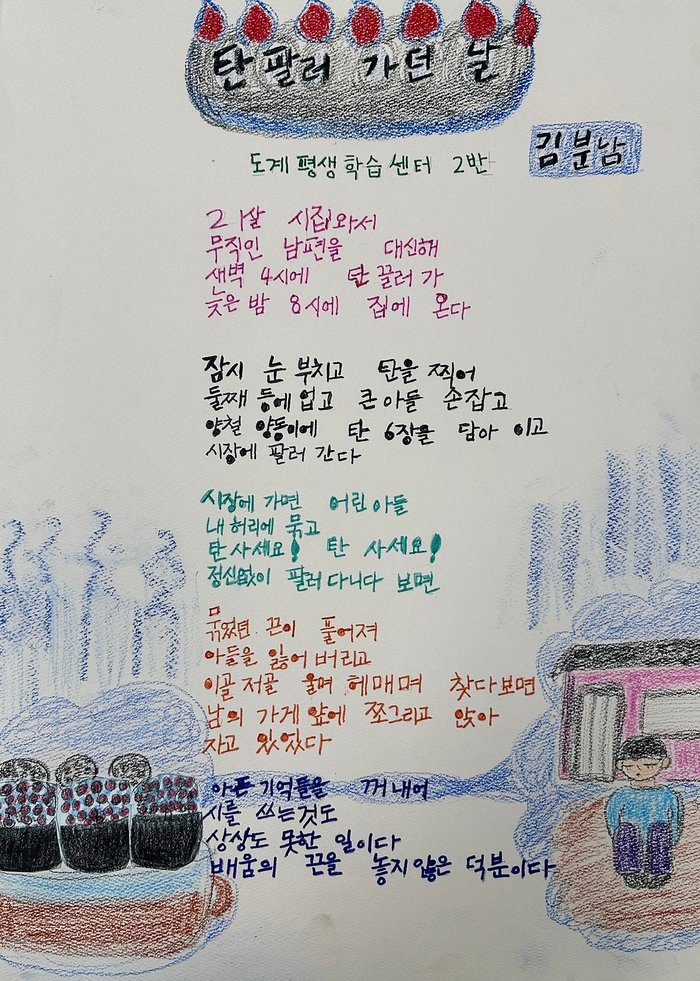 탄 팔러 가던 날
김분남
도계 평생학습센터 2반
21살 시집와서
무직인 남편을 대신해
새벽 4시에 탄 끌러 가
늦은 밤 8시에 집에 온다
잠시 눈 부치고 탄을 찍어
둘째 등에 업고 큰아들 손잡고
양철 양동이에 탄 6장을 담아 이고
시장에 팔러 간다
시장에 가면 어린 아들
내 허리에 묶고
탄 사세요! 탄 사세요!
정신없이 팔러 다니다 보면
묶었던 끈이 풀어져
아들을 잃어 버리고
이골 저골 울며 헤매며 찾다보면
남의 가게 앞에 쪼그리고 앉아
자고 있었다
아픈 기억들을 꺼내어
시를 쓰는것도
상상도 못한 일이다
배움의 끈을 놓지 않은 덕분이다